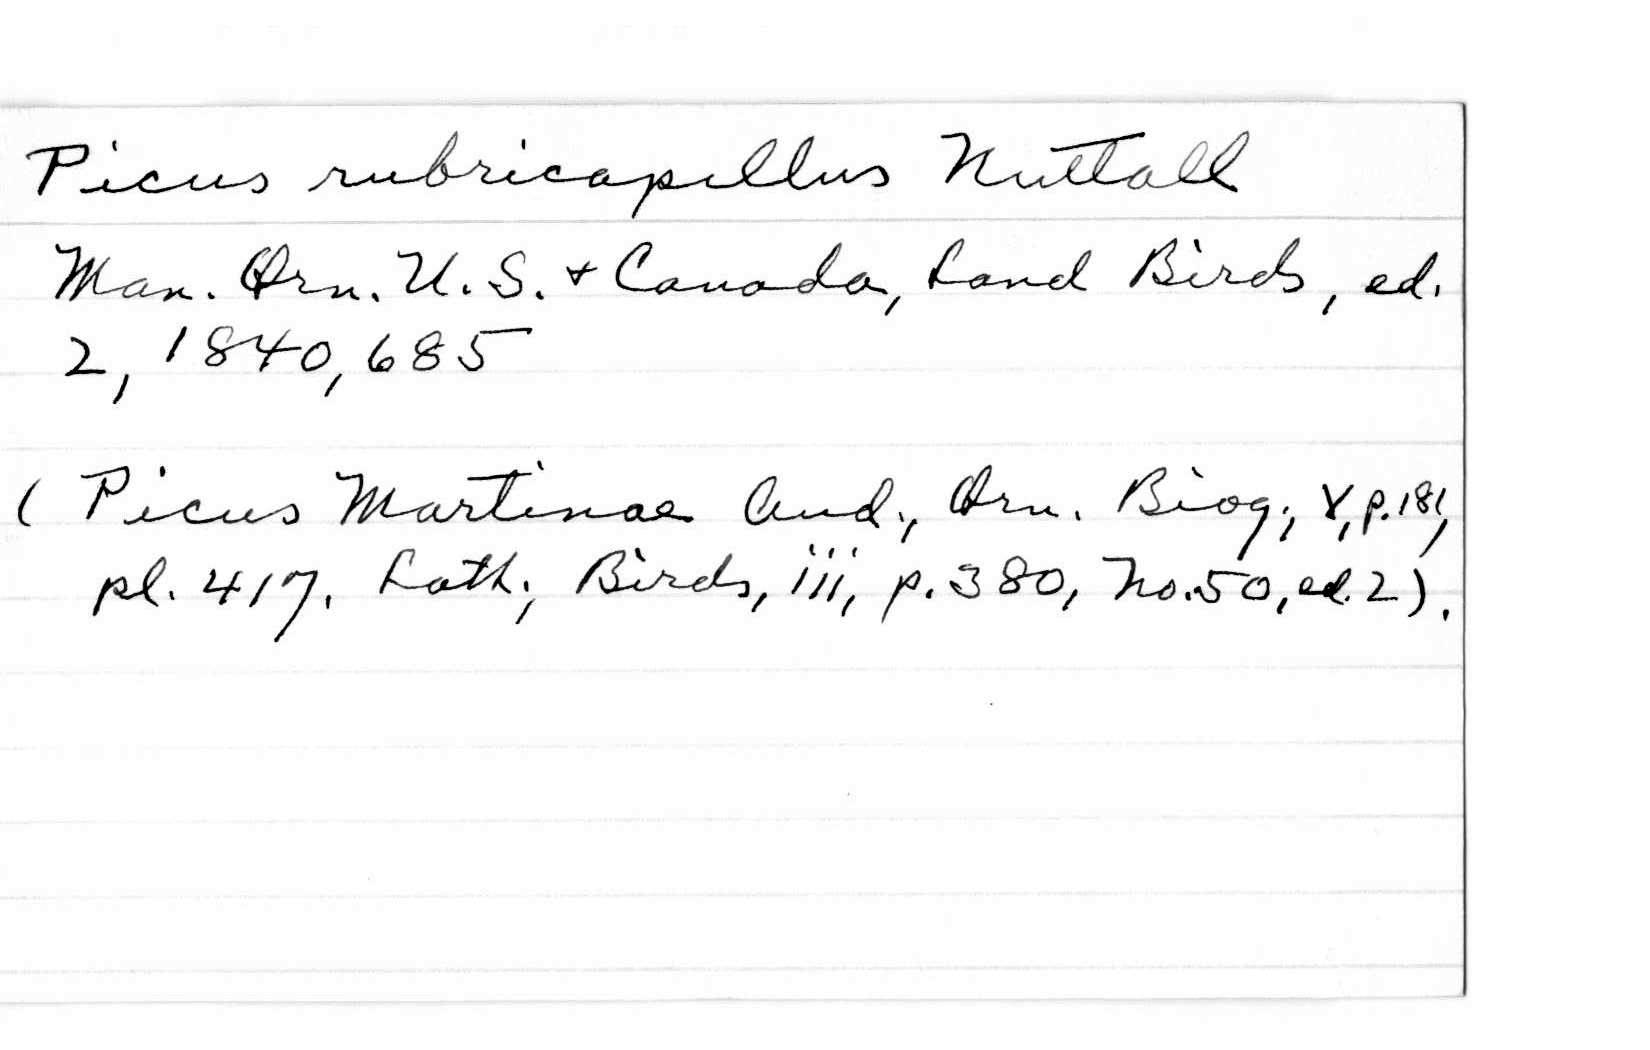 Picus rubricapillus Nuttall
Man. Orn. U.S. + Canada, Land Birds, ed.
2, 1840, 685
( Picus Martinae Aud., Orn. Biog., V, p. 181,
pl. 417. Lath., Birds, iii, p. 380, No. 50, ed. 2).